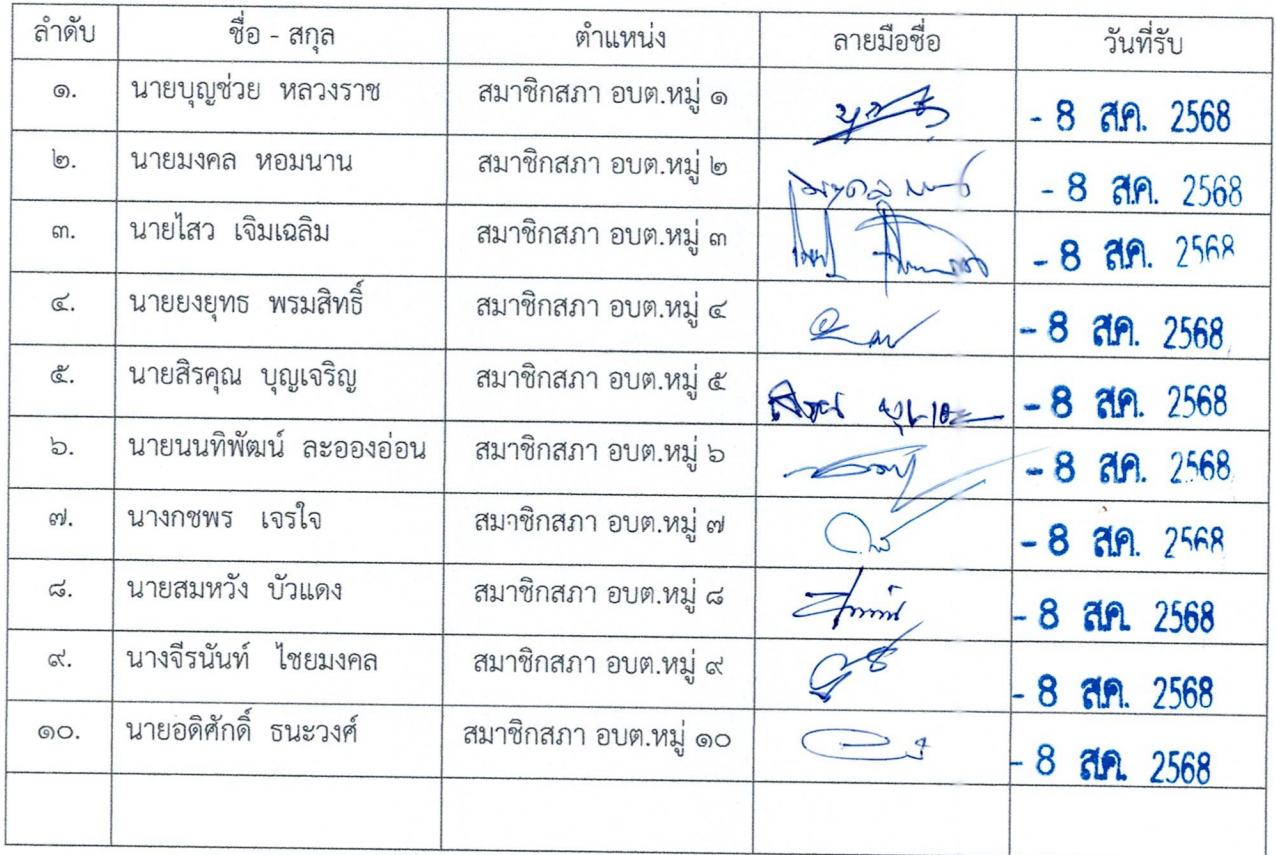 ลำดับ ชื่อ - สกุล ตำแหน่ง ลายมือชื่อ วันที่รับ
๑. นายบุญช่วย หลวงราช สมาชิกสภา อบต.หมู่ ๑ - 8 ส.ค. 2568
๒. นายมงคล หอมนาน สมาชิกสภา อบต.หมู่ ๒ - 8 ส.ค. 2568
๓. นายไสว เจิมเฉลิม สมาชิกสภา อบต.หมู่ ๓ - 8 ส.ค. 2568
๔. นายยงยุทธ พรมสิทธิ์ สมาชิกสภา อบต.หมู่ ๔ - 8 ส.ค. 2568
๕. นายสิรคุณ บุญเจริญ สมาชิกสภา อบต.หมู่ ๕ - 8 ส.ค. 2568
๖. นายนนทิพัฒน์ ละอองอ่อน สมาชิกสภา อบต.หมู่ ๖ - 8 ส.ค. 2568
๗. นางกชพร เจรใจ สมาชิกสภา อบต.หมู่ ๗ - 8 ส.ค. 2568
๘. นายสมหวัง บัวแดง สมาชิกสภา อบต.หมู่ ๘ - 8 ส.ค. 2568
๙. นางจีรนันท์ ไชยมงคล สมาชิกสภา อบต.หมู่ ๙ - 8 ส.ค. 2568
๑๐. นายอดิศักดิ์ ธนะวงศ์ สมาชิกสภา อบต.หมู่ ๑๐ - 8 ส.ค. 2568